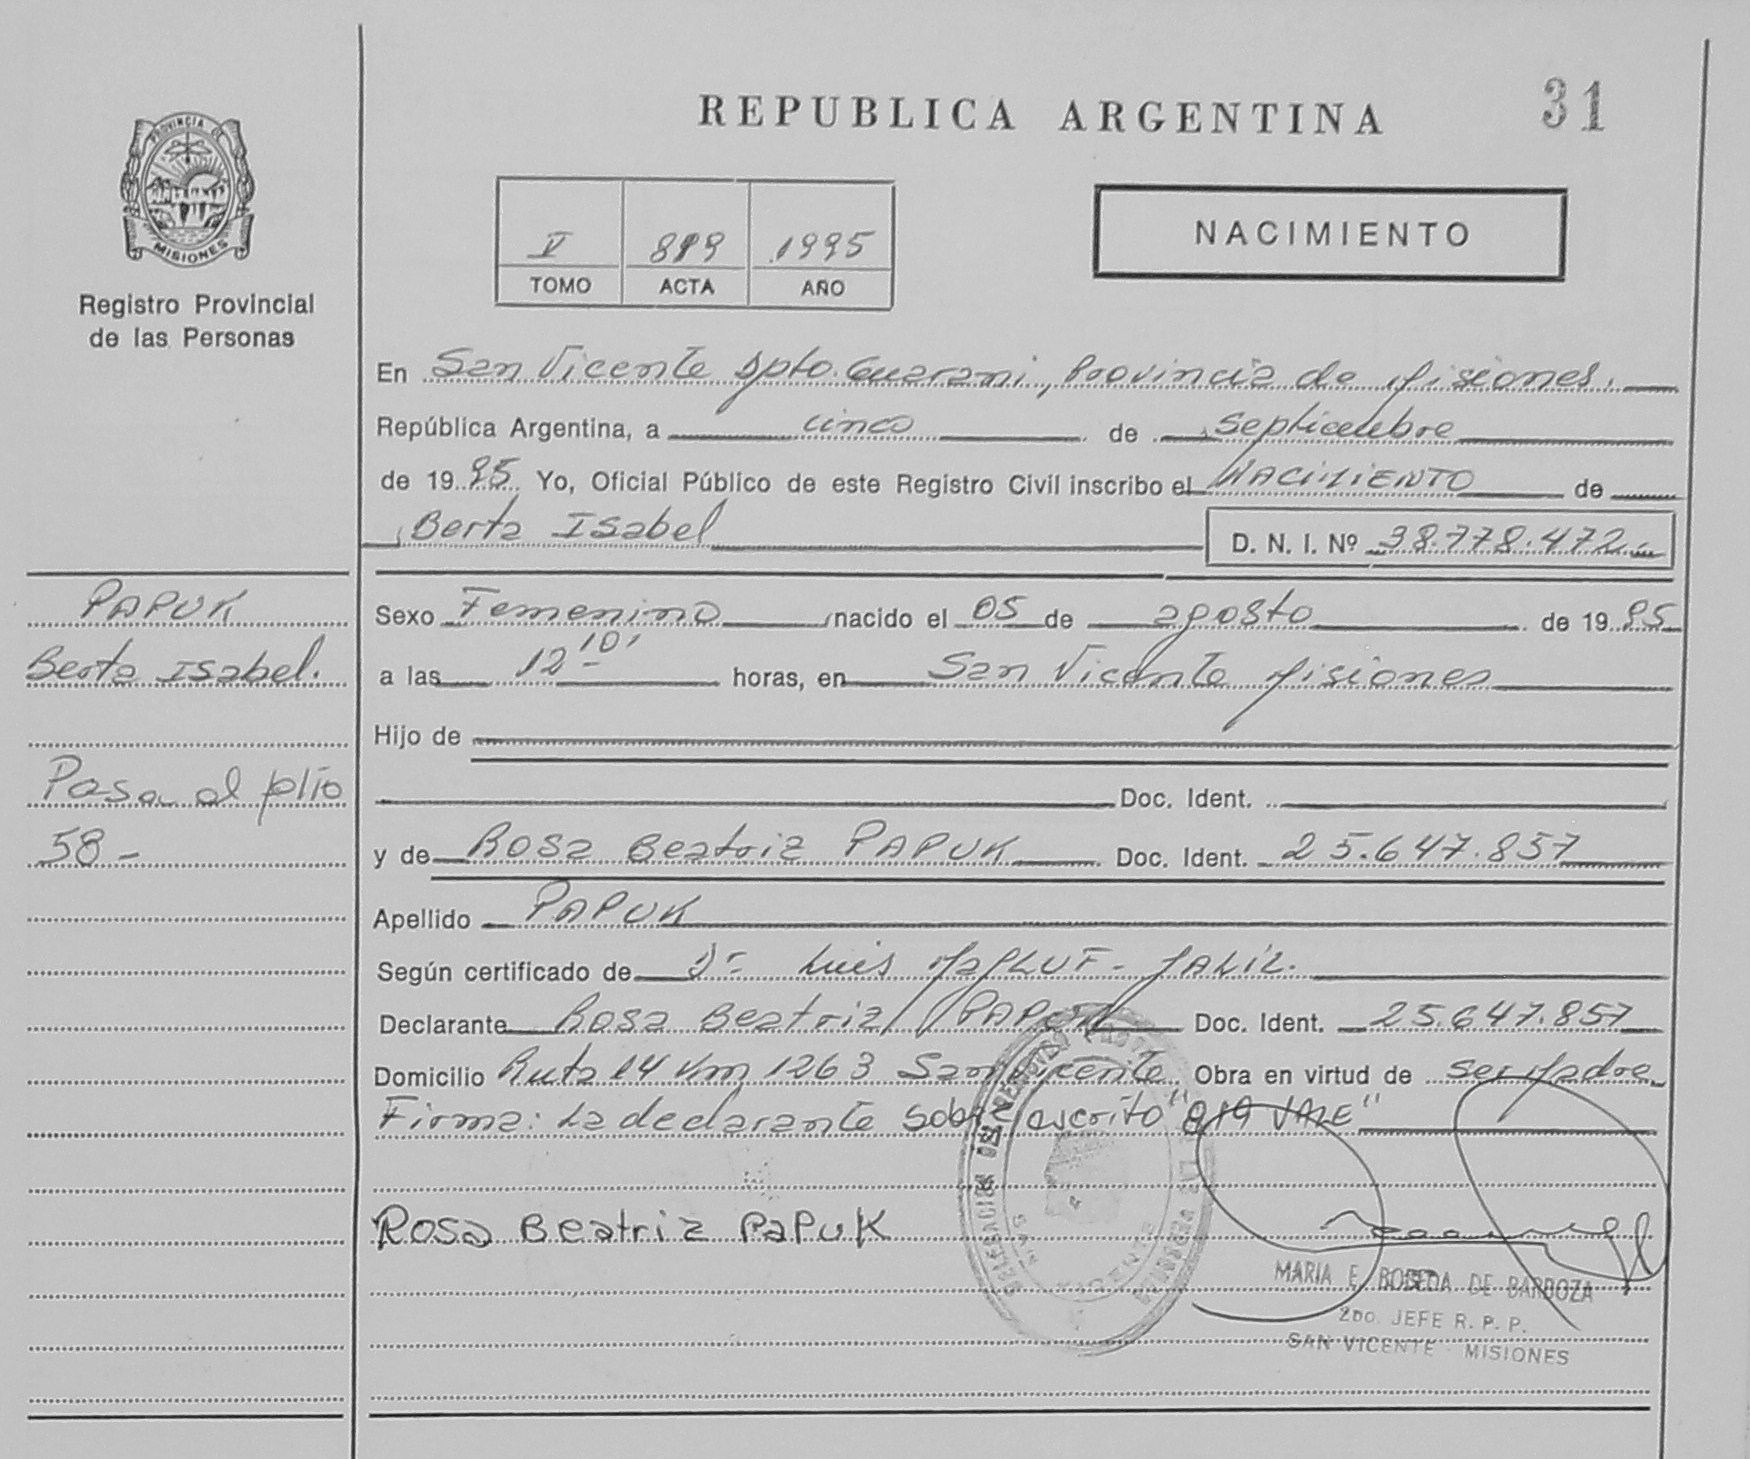 REPUBLICA ARGENTINA
31
PROVINCIA DE
MISIONES
Registro Provincial
de las Personas
V 819 1995
TOMO ACTA AÑO
NACIMIENTO
En San Vicente Dpto. Guarani, Provincia de Misiones.
República Argentina, a cinco de septiembre
de 1995 Yo, Oficial Público de este Registro Civil inscribo el NACIMIENTO de
Berta Isabel D. N. I. Nº 38.778.472.-
PAPUK
Berta Isabel.
Pasa al folio
58 -
Sexo Femenino nacido el 05 de agosto de 1995
a las 12 10' horas, en San Vicente Misiones
Hijo de
Doc. Ident.
y de Rosa Beatriz PAPUK Doc. Ident. 25.647.857
Apellido PAPUK
Según certificado de Dr Luis
Declarante Rosa Beatriz PAPUK Doc. Ident. 25.647.857
Domicilio Ruta 14 Km 1263 San Vicente Obra en virtud de ser Madre
Firma: La declarante Sobre escrito "819 VALE"
Rosa Beatriz PAPUK
SAN VICENTE
MARIA E. DE BARBOZA
2DO. JEFE R. P. P.
SAN VICENTE - MISIONES